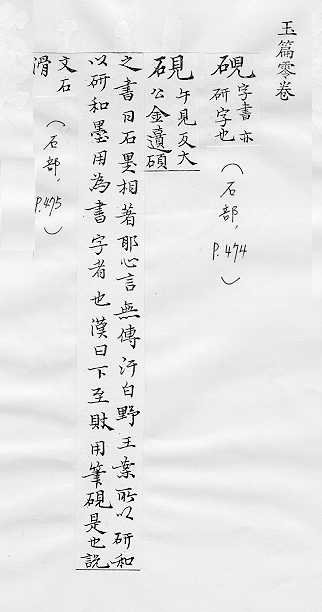 玉篇零卷
硯 字書亦
研字也 （石部，P.474）
硯 午見反大
公金遺碩
之書曰石墨相著耶心言無傳汙白野王案所以研和
以研和墨用為書字者也漢曰下至財用筆硯是也說
文石
滑 （石部，P.475）